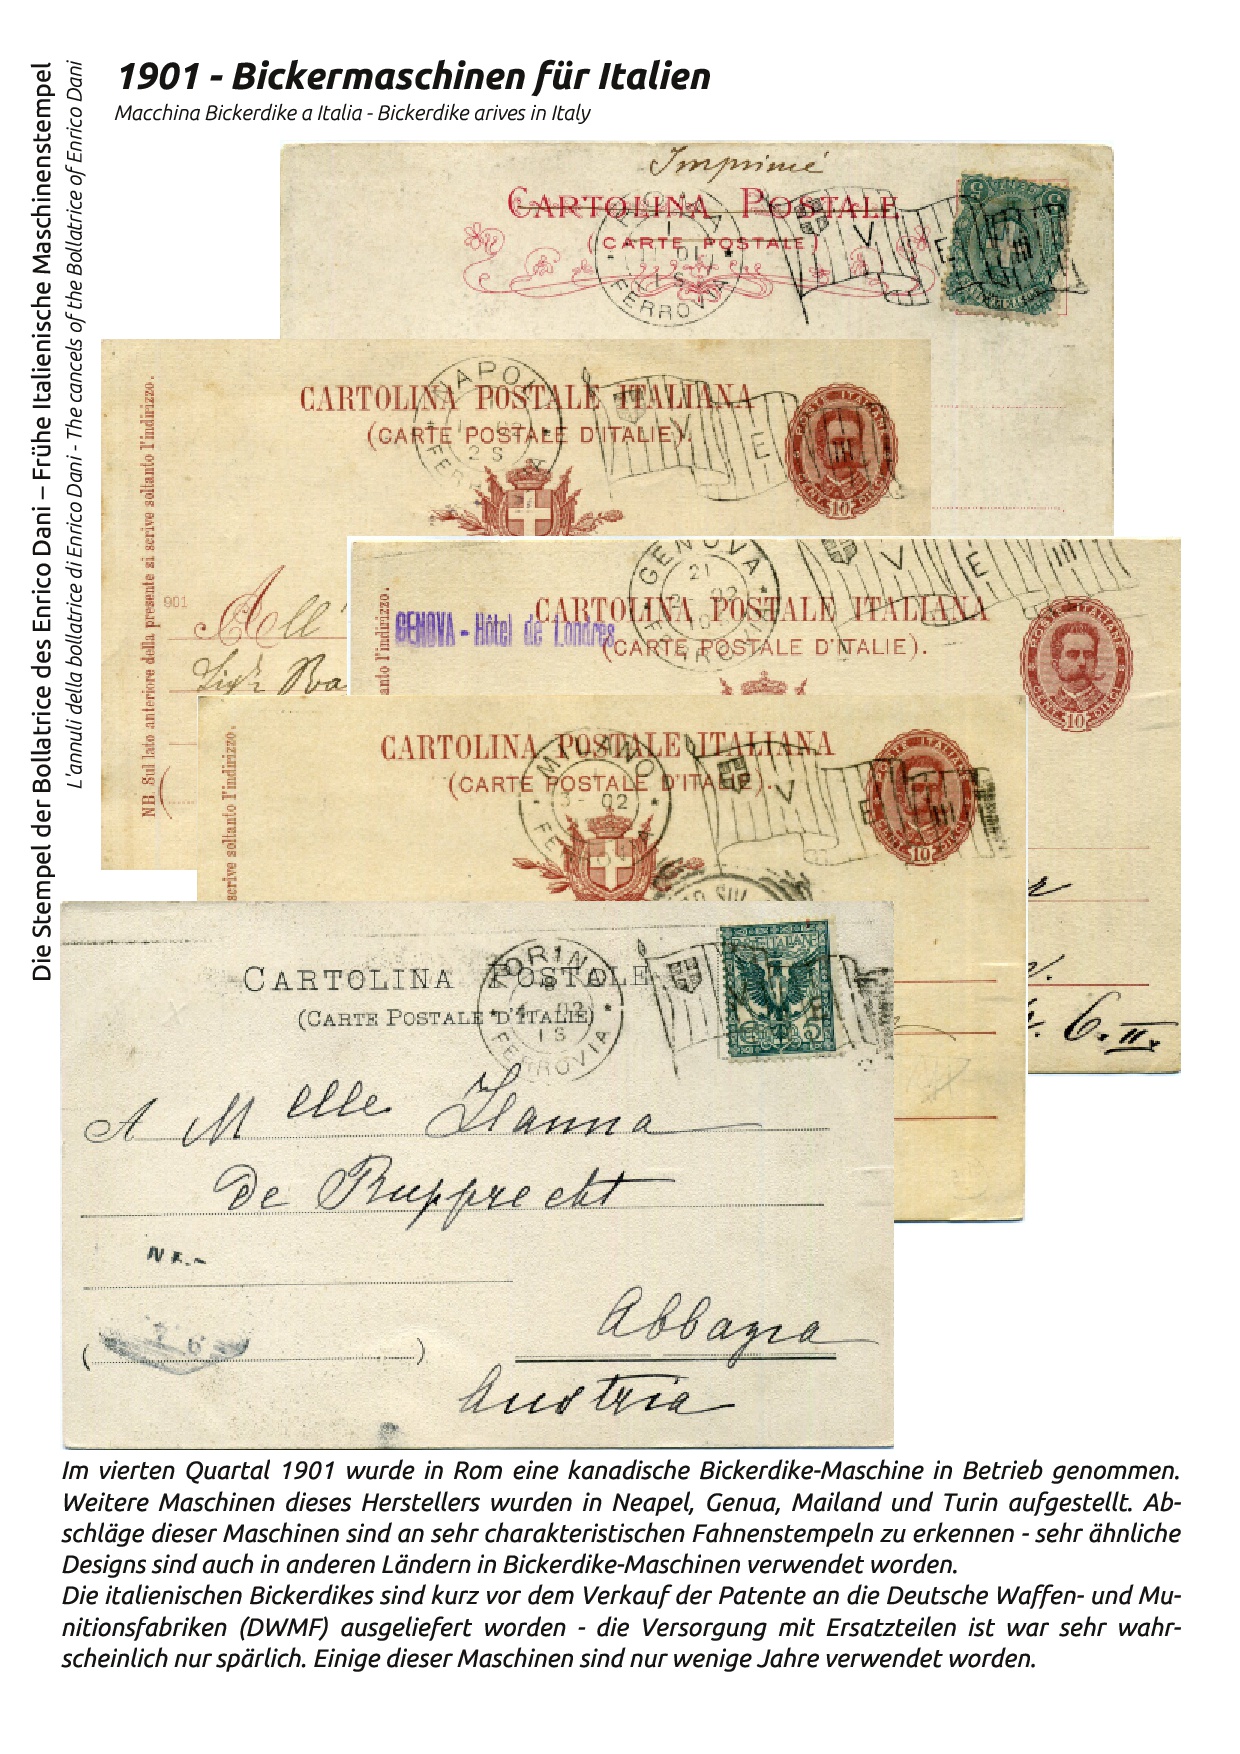 1901 - Bickermaschinen für Italien
Macchina Bickerdike a Italia - Bickerdike arives in Italy
Die Stempel der Bollatrice des Enrico Dani – Frühe Italienische Maschinenstempel
L'annuli della bollatrice di Enrico Dani - The cancels of the Bollatrice of Enrico Dani
Imprimé
CARTOLINA POSTALE
(CARTE POSTALE)
FERROVIA
V E III
NAPOLI
CARTOLINA POSTALE ITALIANA
(CARTE POSTALE D'ITALIE).
2 S
V E III
POSTE ITALIANE
10
NB. Sul lato anteriore della presente si scrive soltanto l'indirizzo.
901
All'
GENOVA
21
V E III
CARTOLINA POSTALE ITALIANA
GENOVA - Hôtel de Londres
(CARTE POSTALE D'ITALIE).
FERROVIA
POSTE ITALIANE
CENT. 10 DIECI
anto l'indirizzo.
MILANO
CARTOLINA POSTALE ITALIANA
(CARTE POSTALE D'ITALIE).
02
V E III
POSTE ITALIANE
10 DIECI
scrive soltanto l'indirizzo.
6. II.
TORINO
CARTOLINA POSTALE
(CARTE POSTALE D'ITALIE)
FERROVIA
V E
A Melle Hanna
De Rupprecht
Abbazia
Austria
Im vierten Quartal 1901 wurde in Rom eine kanadische Bickerdike-Maschine in Betrieb genommen.
Weitere Maschinen dieses Herstellers wurden in Neapel, Genua, Mailand und Turin aufgestellt. Ab-
schläge dieser Maschinen sind an sehr charakteristischen Fahnenstempeln zu erkennen - sehr ähnliche
Designs sind auch in anderen Ländern in Bickerdike-Maschinen verwendet worden.
Die italienischen Bickerdikes sind kurz vor dem Verkauf der Patente an die Deutsche Waffen- und Mu-
nitionsfabriken (DWMF) ausgeliefert worden - die Versorgung mit Ersatzteilen ist war sehr wahr-
scheinlich nur spärlich. Einige dieser Maschinen sind nur wenige Jahre verwendet worden.